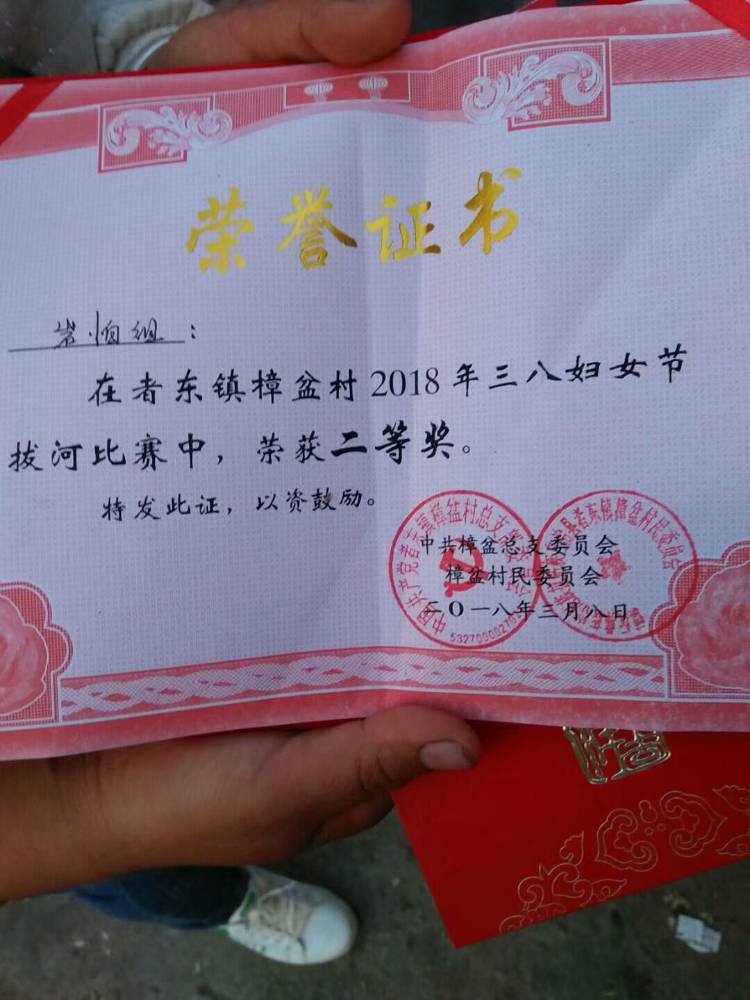 荣誉证书
岩怕组：
在者东镇樟盆村2018年三八妇女节
拔河比赛中，荣获二等奖。
特发此证，以资鼓励。
中共樟盆总支委员会
樟盆村民委员会
二O一八年三月八日